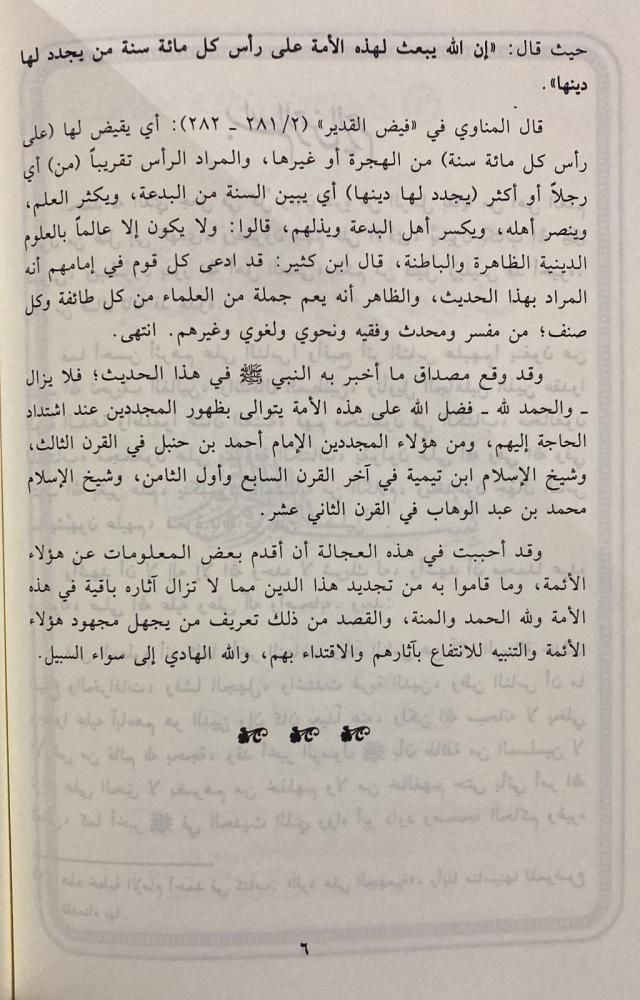 حيث قال: «إن الله يبعث لهذه الأمة على رأس كل مائة سنة من يجدد لها
دينها».
قال المناوي في «فيض القدير» (٢/ ٢٨١ ـ ٢٨٢): أي يقيض لها (على
رأس كل مائة سنة) من الهجرة أو غيرها، والمراد الرأس تقريباً (من) أي
رجلاً أو أكثر (يجدد لها دينها) أي يبين السنة من البدعة، ويكثر العلم،
وينصر أهله، ويكسر أهل البدعة ويذلهم، قالوا: ولا يكون إلا عالماً بالعلوم
الدينية الظاهرة والباطنة، قال ابن كثير: قد ادعى كل قوم في إمامهم أنه
المراد بهذا الحديث، والظاهر أنه يعم جملة من العلماء من كل طائفة وكل
صنف؛ من مفسر ومحدث وفقيه ونحوي ولغوي وغيرهم. انتهى.
وقد وقع مصداق ما أخبر به النبي ﷺ في هذا الحديث؛ فلا يزال
ـ والحمد لله ـ فضل الله على هذه الأمة يتوالى بظهور المجددين عند اشتداد
الحاجة إليهم، ومن هؤلاء المجددين الإمام أحمد بن حنبل في القرن الثالث،
وشيخ الإسلام ابن تيمية في آخر القرن السابع وأول الثامن، وشيخ الإسلام
محمد بن عبد الوهاب في القرن الثاني عشر.
وقد أحببت في هذه العجالة أن أقدم بعض المعلومات عن هؤلاء
الأئمة، وما قاموا به من تجديد هذا الدين مما لا تزال آثاره باقية في هذه
الأمة ولله الحمد والمنة، والقصد من ذلك تعريف من يجهل مجهود هؤلاء
الأئمة والتنبيه للانتفاع بآثارهم والاقتداء بهم، والله الهادي إلى سواء السبيل.
٦